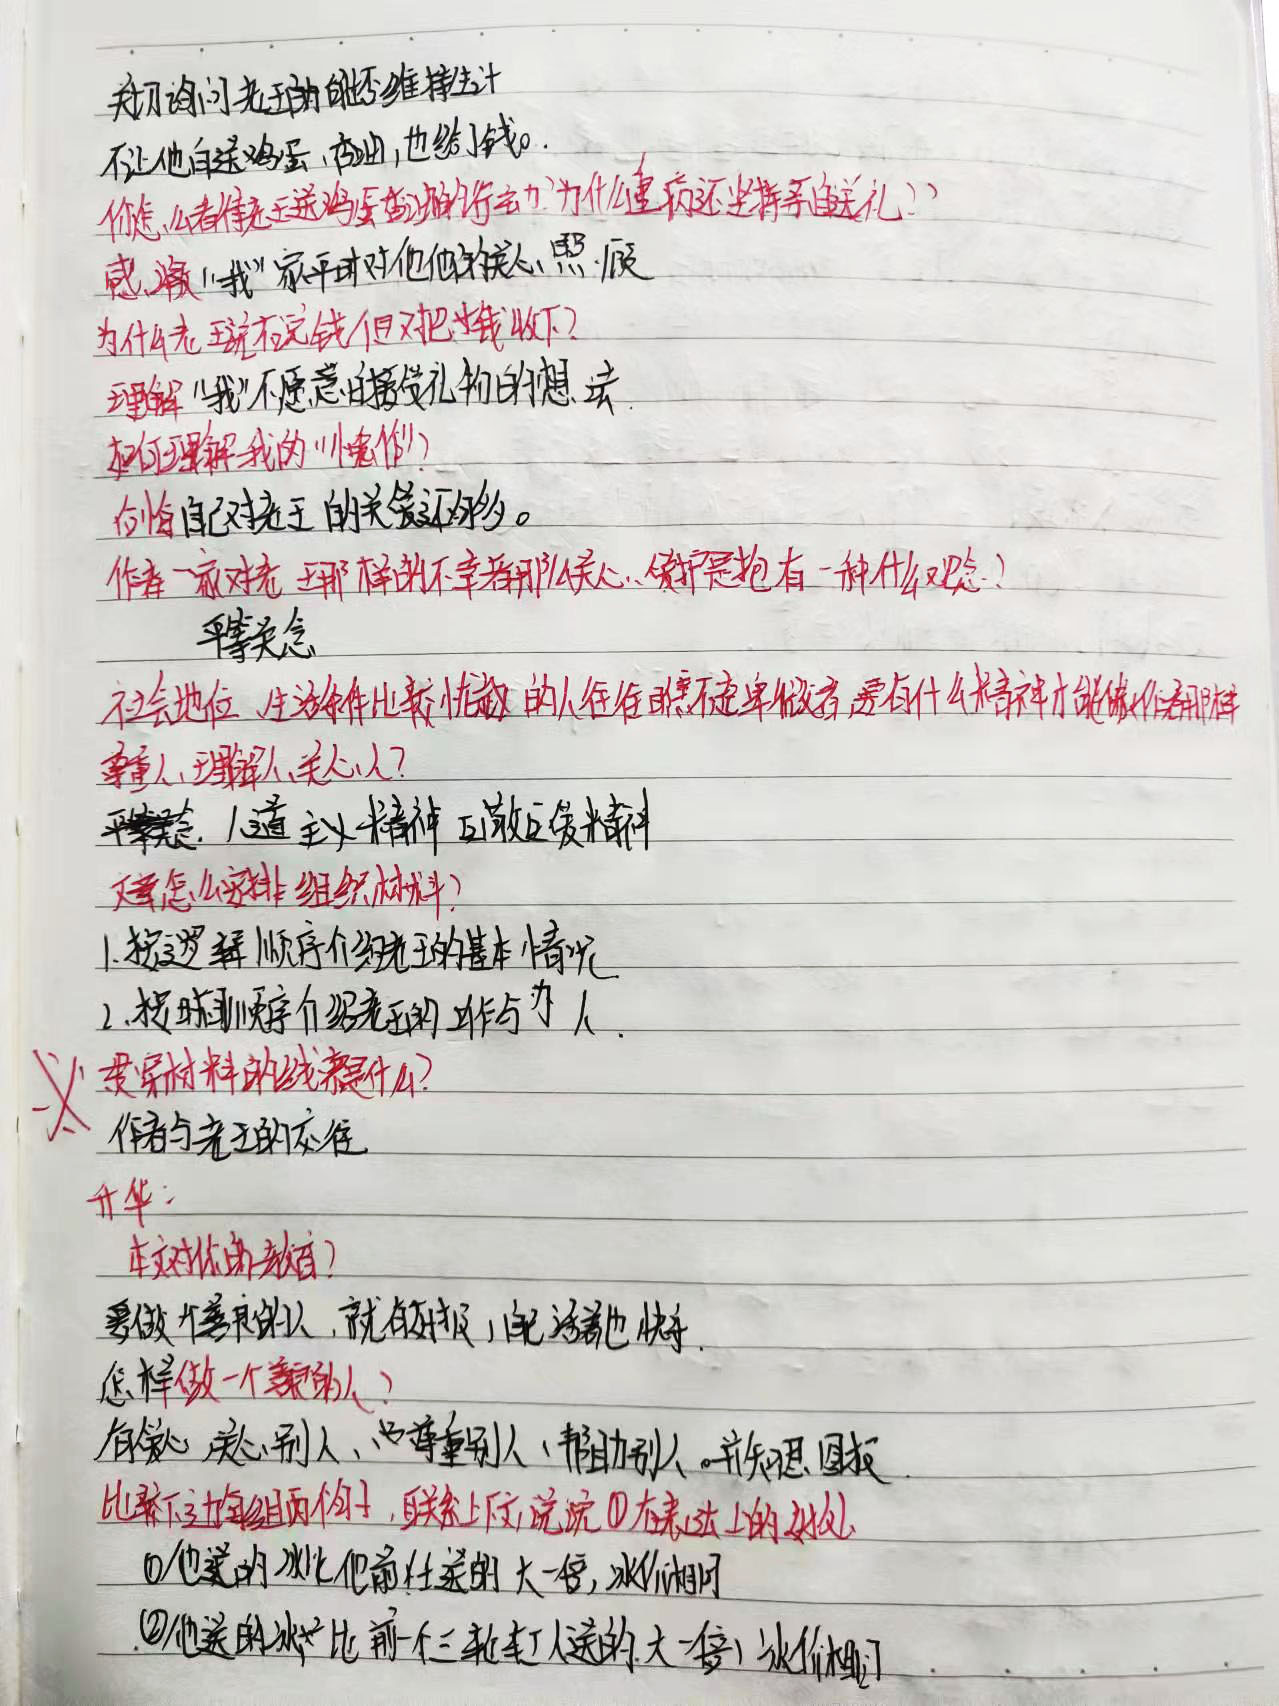 关切询问老王的能否维持生计
不让他白送鸡蛋,香油,也给了钱。
你怎么看待老王送鸡蛋香油的行为?为什么重病还坚持亲自送礼?
感激“我”家平时对他他的关心、照顾
为什么老王说不完钱但又把钱收下?
理解“我”不愿意白接受礼物的想法.
如何理解我的“愧怍”?
自己对老王的关爱还不够多。
作者一家对老王那样的不幸者那么关心、爱护是抱有一种什么观念?
平等观念
社会地位、生活条件比较优越的人往往瞧不起卑微者,要有什么精神才能像作者那样
尊重人、理解人、关心人?
人道主义精神 互敬互爱精神
文章怎么安排组织材料?
1.按逻辑顺序介绍老王的基本情况
2.按时间顺序介绍老王的工作与为人.
贯穿材料的线索是什么?
作者与老王的交往
升华:
本文对你的教育?
要做个善良的人,就有好报,自己活着也快乐.
怎样做一个善良的人?
有爱心,关心别人、尊重别人、帮助别人。并知恩图报.
比较下边每组两个句子,联系上下文,说说①在表达上的好处.
①他送的冰比他前任送的大一倍,冰价相同
②他送的冰比前一个三轮车工人送的大一倍,冰价相同